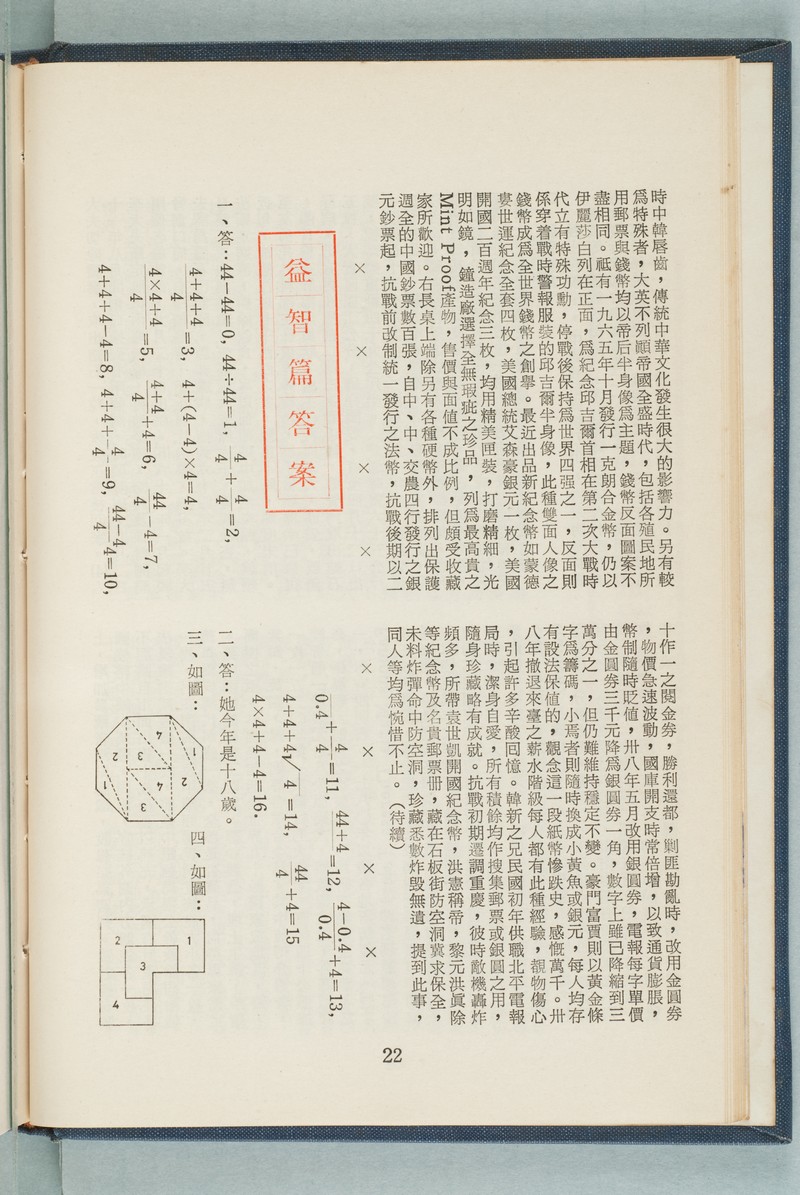 時中韓唇齒，傳統中華文化發生很大的影響力。另有較
爲特殊者，大英不列顚帝國全盛時代，包括各殖民地所
用郵票與錢幣均以帝后半身像爲主題，錢幣反面圖案不
盡相同。祗有一九六五年十月發行一克朗合金幣，仍以
伊麗莎白列在正面，爲紀念邱吉爾首相在第二次大戰時
代立有特殊功勳，停戰後保持爲世界四强之一，反面則
係穿着戰時警報服裝的邱吉爾半身像，此種雙面人像之
錢幣成爲全世界錢幣之創舉。最近出品新紀念幣如蒙德
婁世運紀念全套四枚，美國總統艾森豪銀元一枚，美國
開國二百週年紀念三枚，均用精美匣裝，打磨精細，光
明如鏡，鐘造廠選擇全無瑕疵之珍品，列爲最高貴之
Mint Proof產物，售價與面值不成比例，但頗受收藏
家所歡迎。右長桌上端除另有各種硬幣外，排列出保護
週全的中國鈔票數百張，自中、中、交農四行發行之銀
元鈔票起，抗戰前改制統一發行之法幣，抗戰後期以二
十作一之閱金券，勝利還都，剿匪勘亂時，改用金圓券
，物價急速波動，國庫開支時常倍增，以致通貨膨脹，
幣制隨時貶値，卅八年五月改用銀圓券，電報每字單價
由金圓券三千元降爲銀圓券一角，數字上雖已降縮到三
萬分之一，但仍難維持穩定不變。豪門富賈則以黃金條
字爲籌碼，小焉者則隨時換成小黃魚或銀元，每人均存
有設法保値的，觀念這一段紙幣慘跌史，感慨萬千。卅
八年撤退來臺之薪水階級每人都有此種經驗，覩物傷心
，引起許多辛酸囘憶。韓新之兄民國初年供職北平電報
局時，潔身自愛，所有積餘均作搜集郵票或銀圓之用，
隨身珍藏略有成就。抗戰初期遷調重慶，彼時敵機轟炸
頻多，所帶袁世凱開國紀念幣，洪憲稱帝，黎元洪眞除
等紀念幣及名貴郵票册，藏在石板街防空洞冀求保全，
未料炸彈命中防空洞，珍藏悉數炸毀無遺，提到此事，
同人等均爲惋惜不止。（待續）
× × × × × × × ×
益智篇答案
一、答：44−44=0, 44÷44=1, 4/4+4/4=2,
(4+4+4)/4=3, 4+(4−4)×4=4,
(4×4+4)/4=5, (4+4)/4+4=6, 44/4−4=7,
4+4+4−4=8, 4+4+4/4=9, (44−4)/4=10,
4/0.4+4/4=11, (44+4)/4=12, (4−0.4)/0.4+4=13,
4+4+4√4=14, 44/4+4=15
4×4+4−4=16.
二、答：她今年是十八歲。
三、如圖：
1 2 3 4 2 1 3 4
四、如圖：
1
2
3
4
22